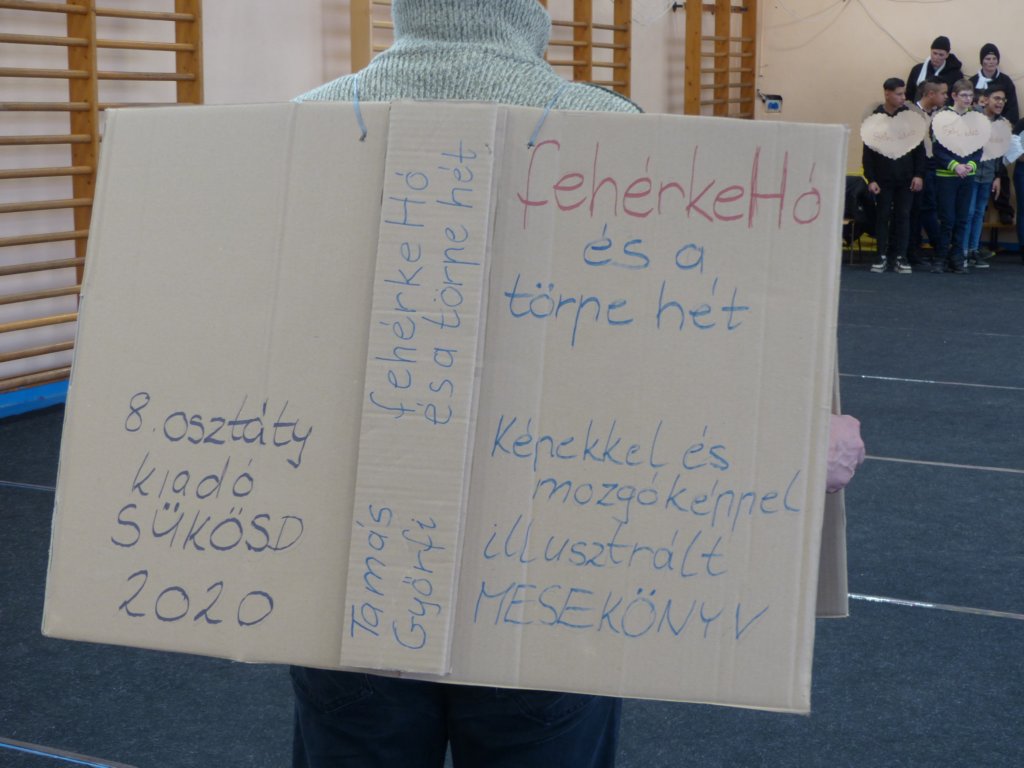 8. osztáty
kiadó
SÜKÖSD
2020
fehérkeHó
és a törpe hét
Tamás
Győrfi
fehérkeHó
és a
törpe hét
Képekkel és
mozgóképpel
illusztrált
MESEKÖNYV